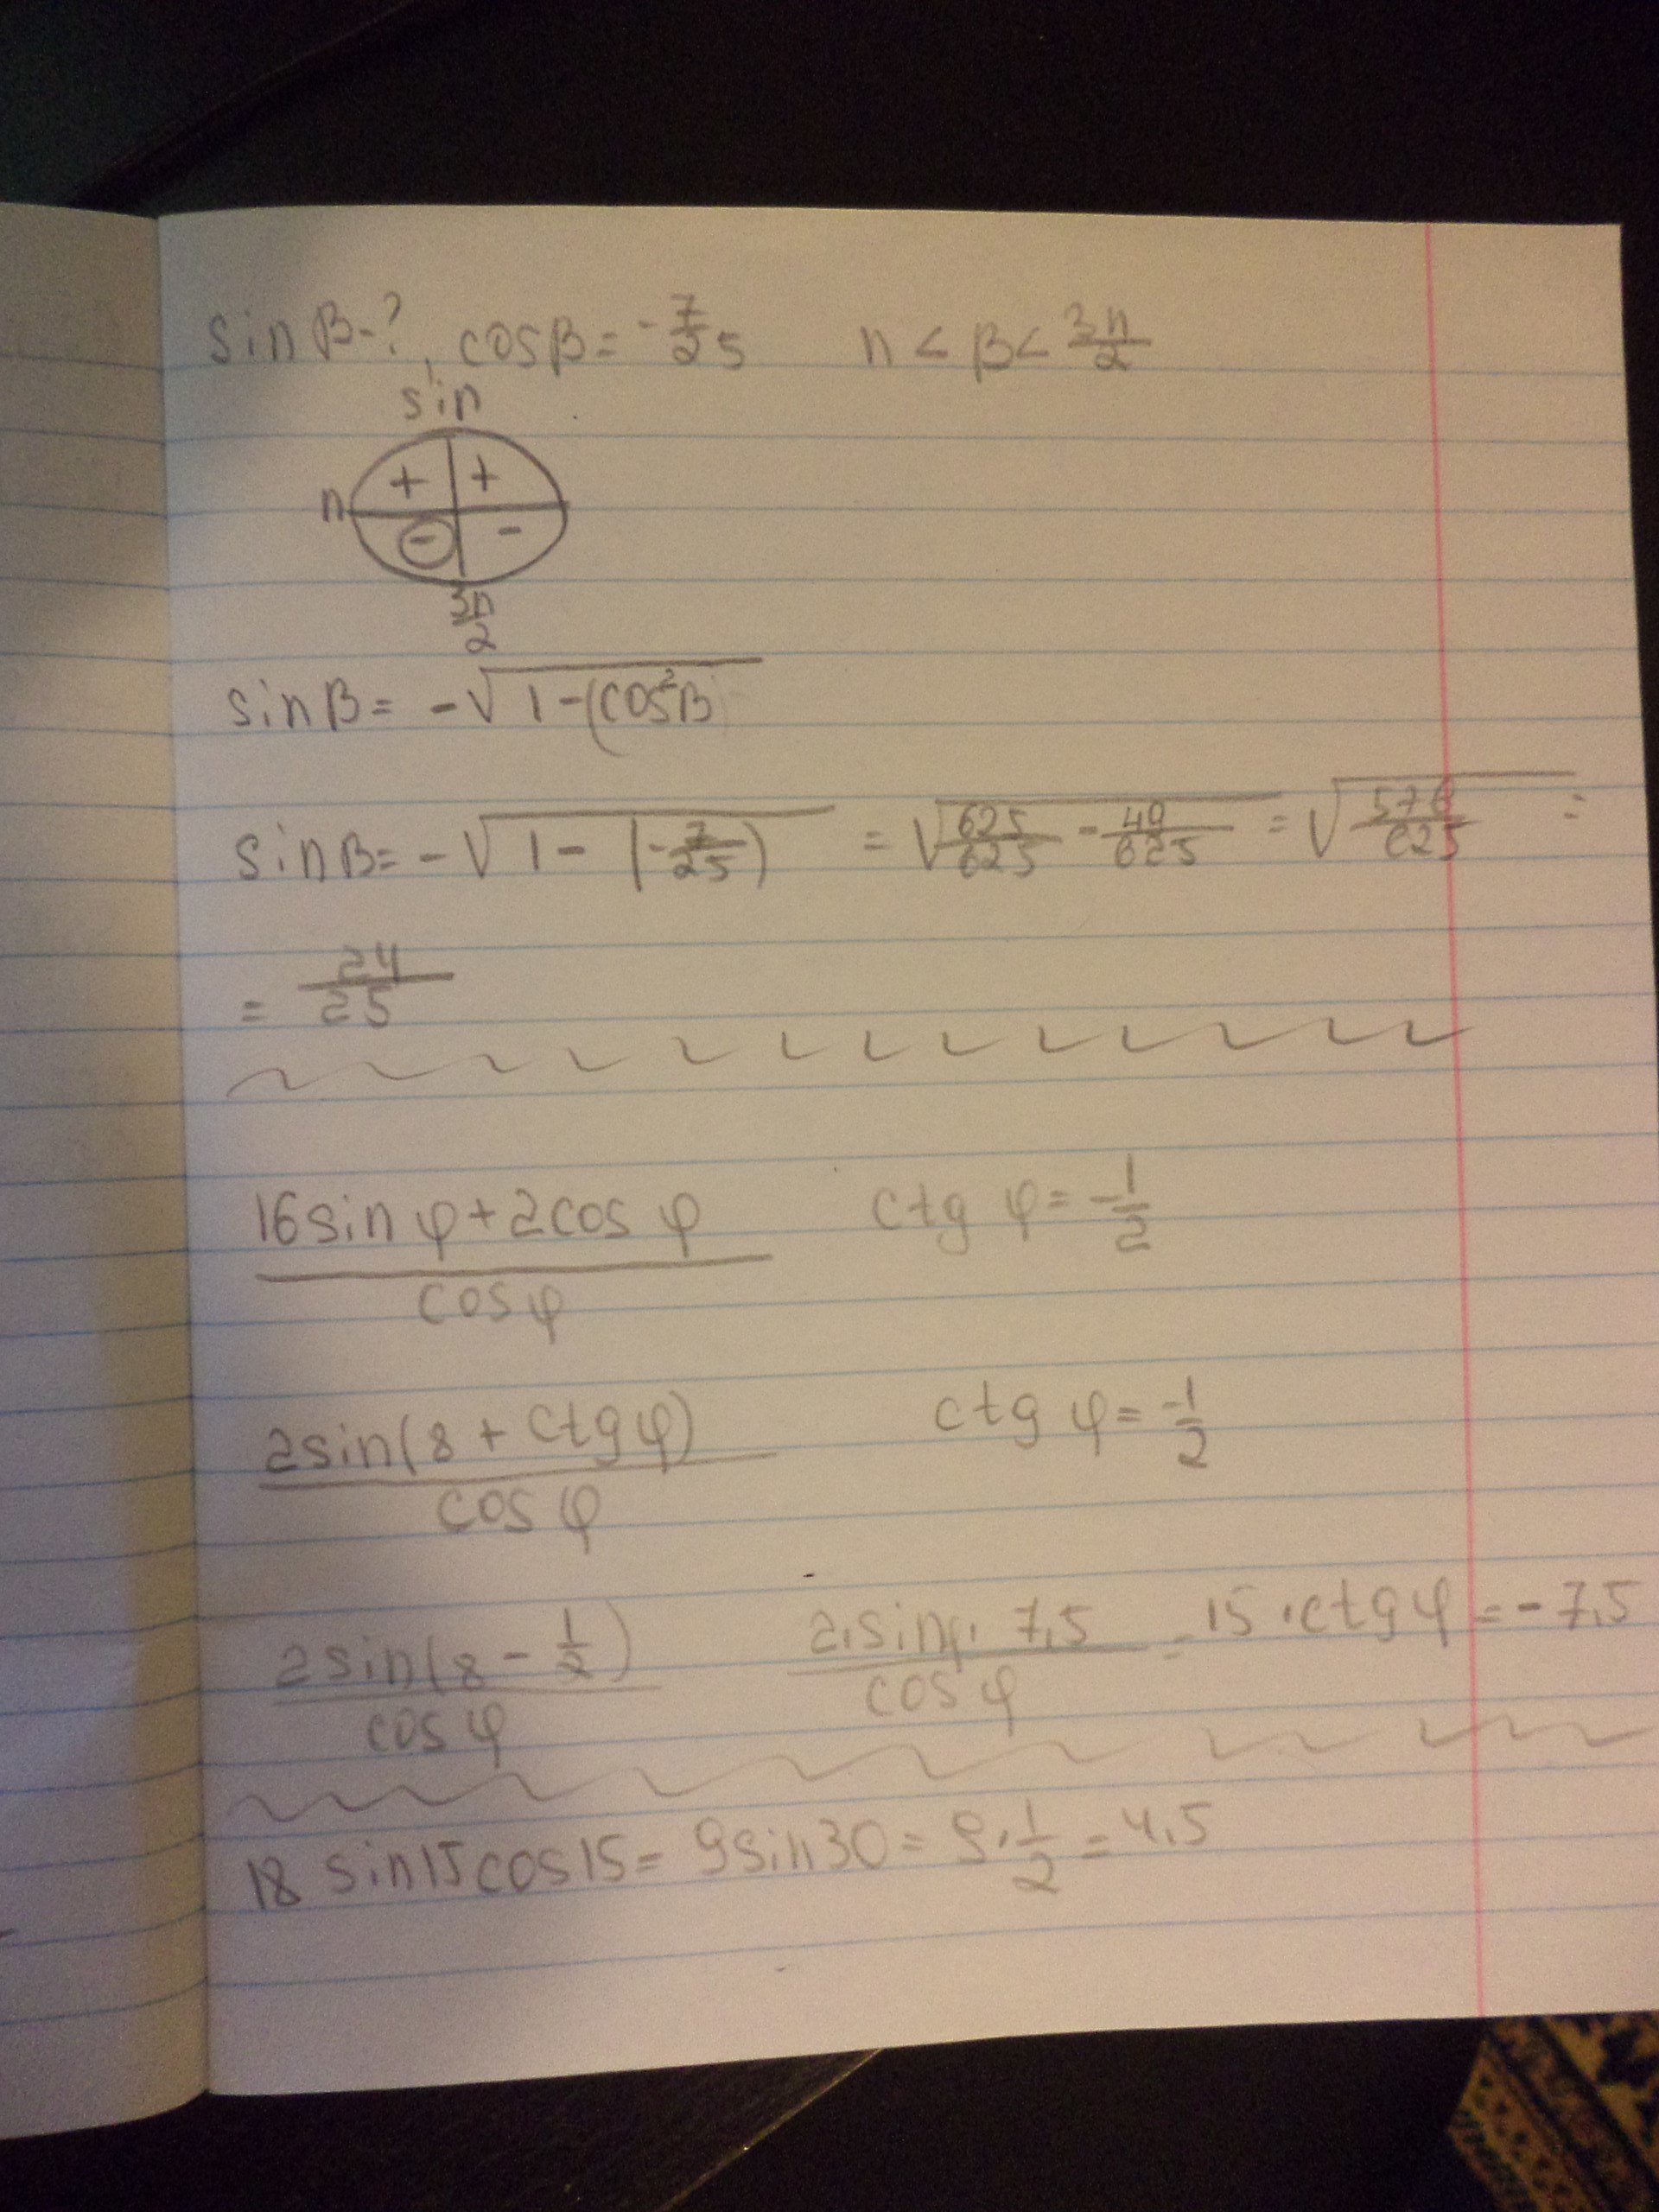 sin β-?, cos β = -7/25 n < β < 3n/2
sin
+ +
n
- -
3n/2
sin β = -√(1-(cos²β
sin β = -√(1 - (-7/25)) = √(625/625 - 49/625) = √(576/625) =
= 24/25
(16 sin φ + 2 cos φ)/(cos φ) ctg φ = -1/2
(2 sin(8 + ctg φ))/(cos φ) ctg φ = -1/2
(2 sin(8 - 1/2))/(cos φ) (2·sin φ · 7,5)/(cos φ) = 15 · ctg φ = -7,5
18 sin15 cos15 = 9 sin 30 = 9 · 1/2 = 4,5